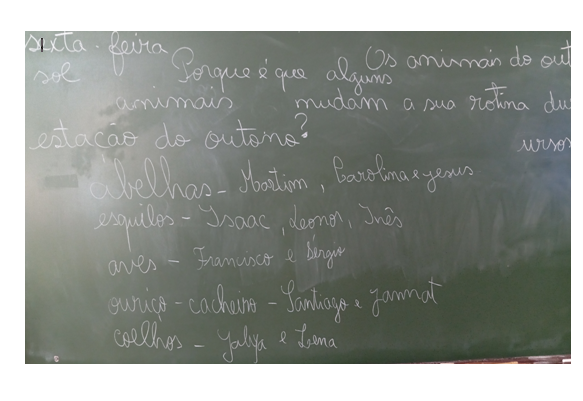 sexta-feira
sol
Os animais do out
Porque é que alguns
animais mudam a sua rotina du
estação do outono?
ursos
abelhas - Martim, Carolina e yesus
esquilos - Isaac, Leonor, Inês
aves - Francisco e Sérgio
ouriço-cacheiro - Santiago e Jannat
coelhos - Yahya e Lena